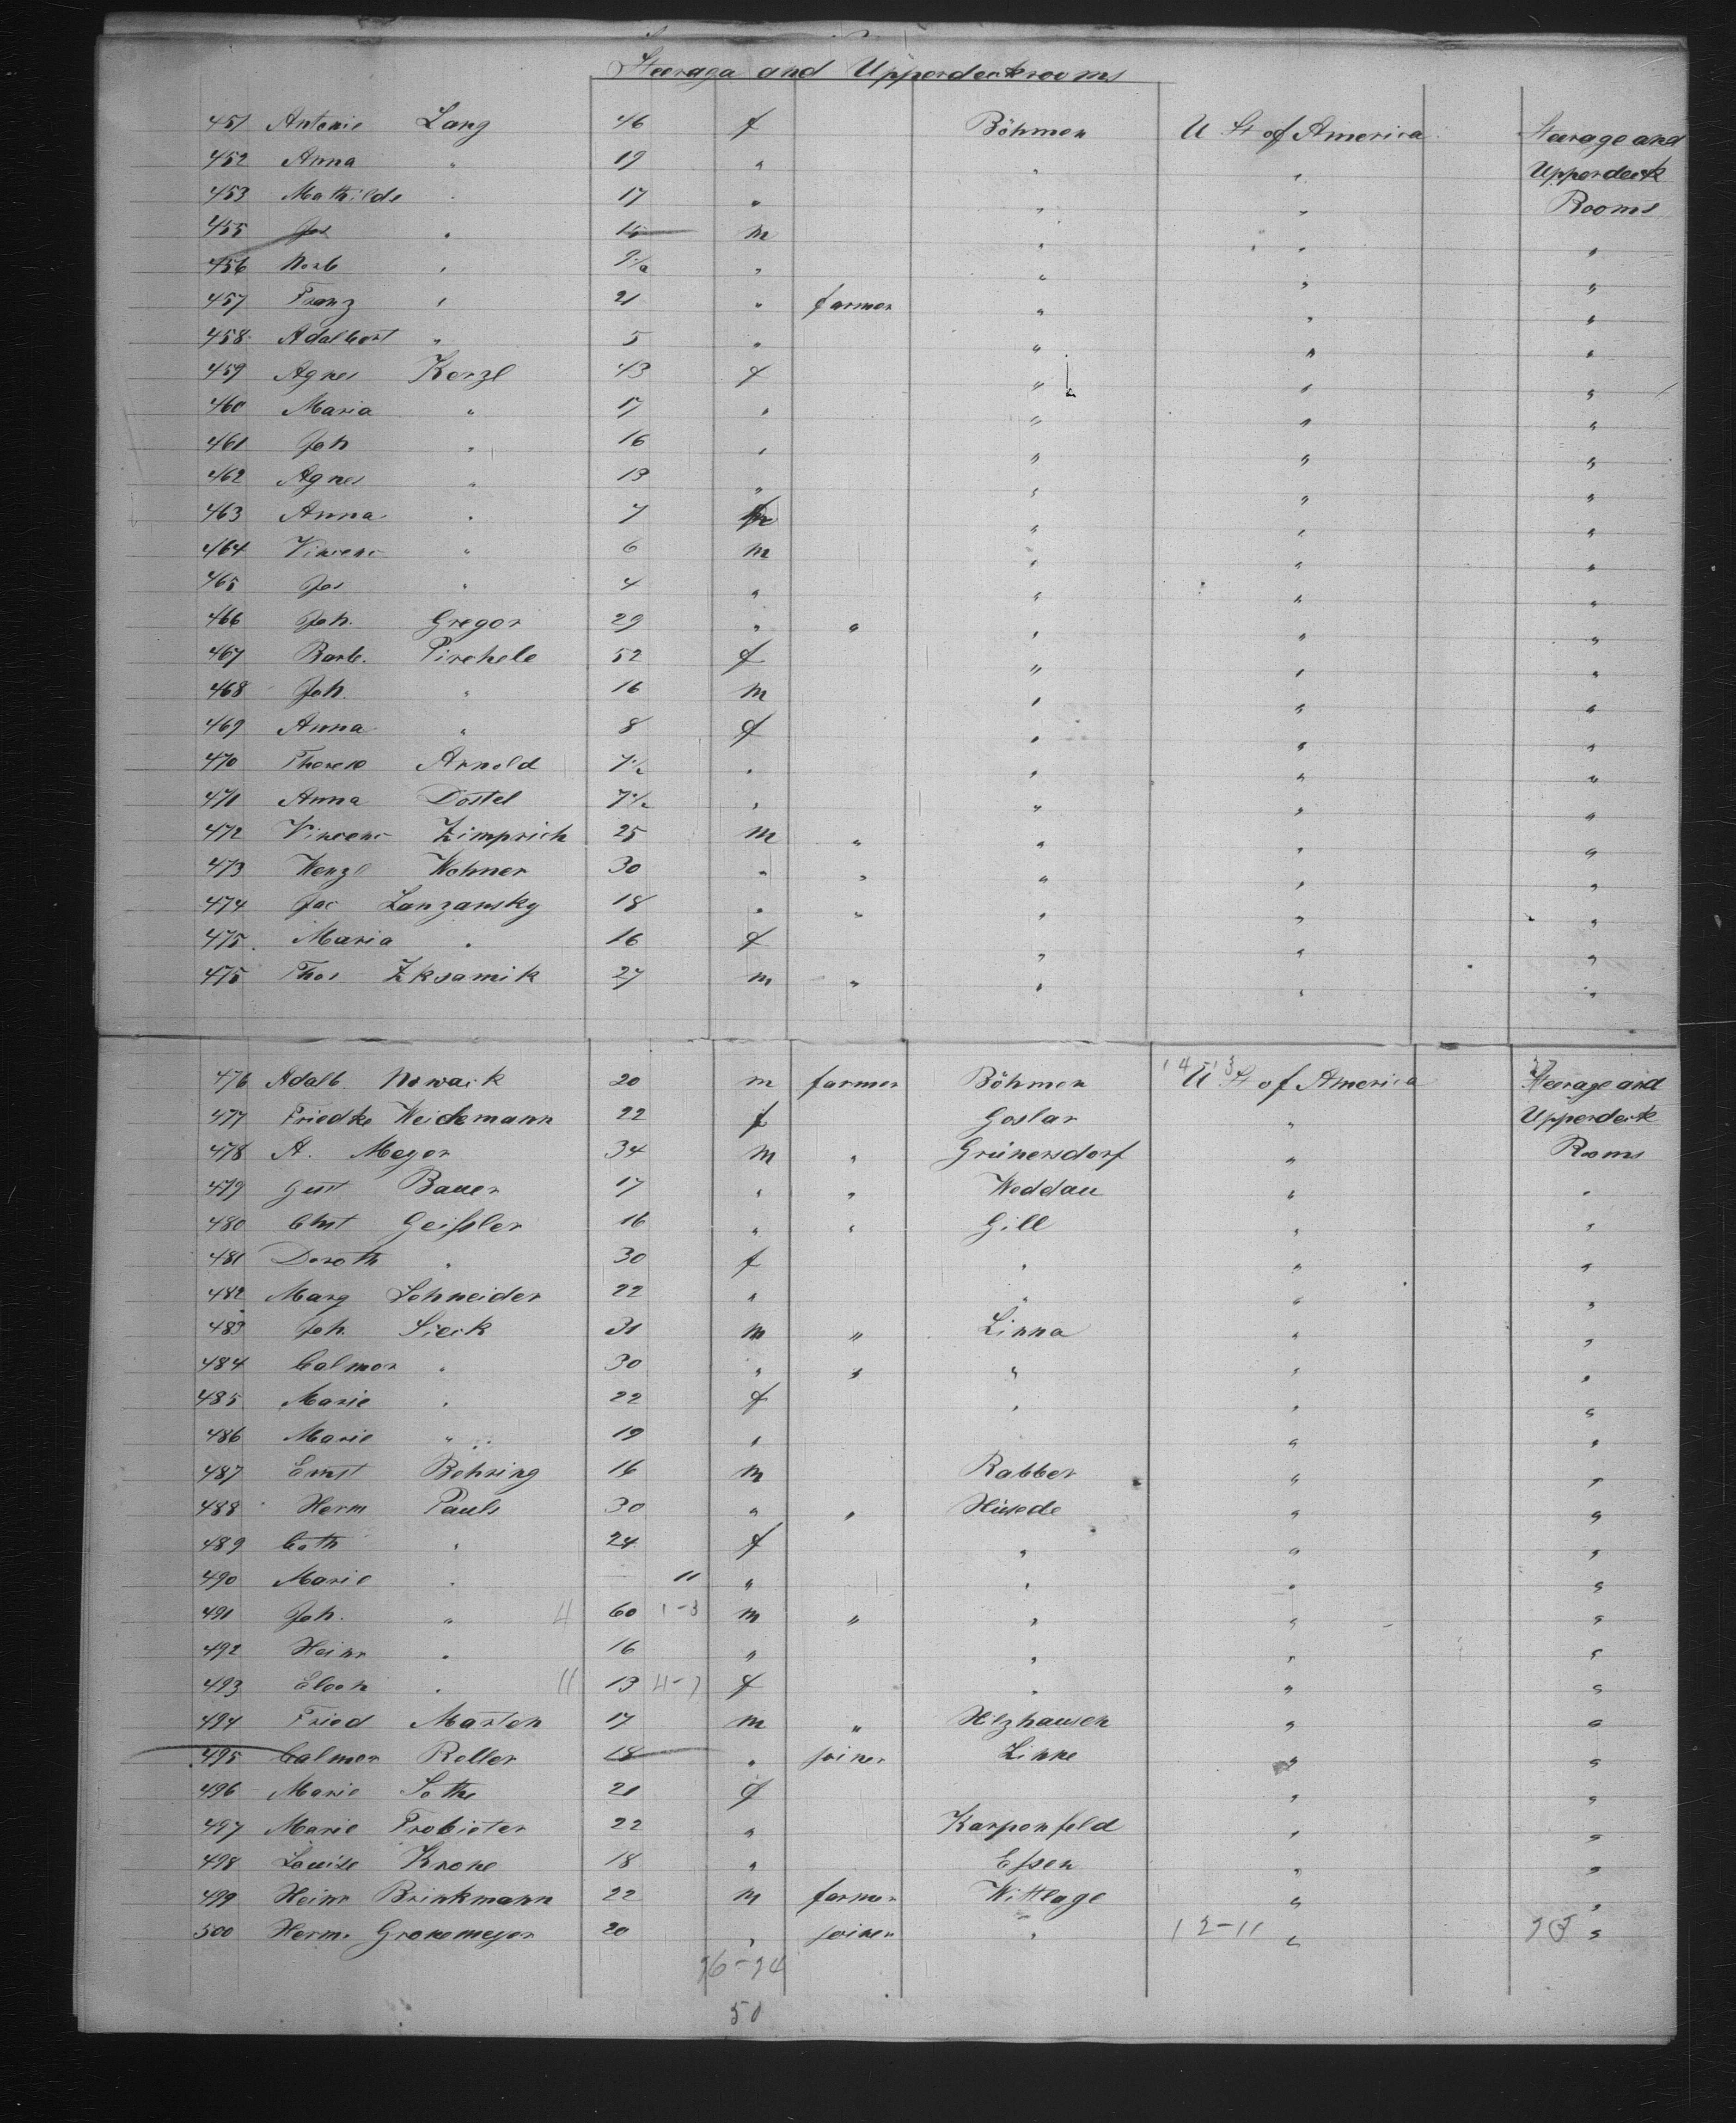 Steerage and Upperdeckrooms
451 Antonie Lang 46 f Böhmen U St of America Steerage and
452 Anna " 19 " " " Upperdeck
453 Mathilde " 17 " " " Rooms
455 Jos " 15 m " " "
456 Norb " 9½ " " " "
457 Franz " 21 " farmer " " "
458 Adalbert " 5 " " " "
459 Agnes Kerzl 43 f " " "
460 Maria " 17 " " " "
461 Joh " 16 " " " "
462 Agnes " 13 " " " "
463 Anna " 7 " " "
464 Vincenc " 6 m " " "
465 Jos " 4 " " " "
466 Joh. Gregor 29 " " " " "
467 Barb. Pirchele 52 f " " "
468 Joh. " 16 m " " "
469 Anna " 8 f " " "
470 Therese Arnold 7½ " " " "
471 Anna Dostel 7½ " " " "
472 Vincenc Zimprich 25 m " " " "
473 Wenzl Wohner 30 " " " " "
474 Jac Lanzansky 18 " " " " "
475 Maria " 16 f " " "
475 Thos Zksamik 27 m " " " "
476 Adalb Nowack 20 m farmer Böhmen U St of America Steerage and
477 Friedke Weidemann 22 f Goslar " Upperdeck
478 A. Meyer 34 m " Grünersdorf " Rooms
479 Gust Bauer 17 " " Weddau " "
480 Chst Geißler 16 " " Gill " "
481 Doroth " 30 f " " "
482 Marg Schneider 22 " " " "
483 Joh. Sieck 31 m " Linna " "
484 Calmer " 30 " " " " "
485 Marie " 22 f " " "
486 Marie " 19 " " "
487 Ernst Behring 16 m Rabber " "
488 Herm Pauls 30 " " Hüsede " "
489 Cath " 24 f " " "
490 Marie " 11 " " " "
491 Joh. " 4 60 1-3 m " " " "
492 Heinr " 16 " " " "
493 " 11 13 4-7 f " " "
494 Fried Marten 17 m " Hilzhausen " "
495 Calmer Reller 18 " joiner Linne " "
496 Marie Sothe 21 f " "
497 Marie Frobieter 22 " Karpenfeld " "
498 Louise Krone 18 " Eßen " "
499 Heinr Brinkmann 22 m farmer Wittlage " "
500 Herm. Gronemeyer 20 " joiner " 12-11 " "
50